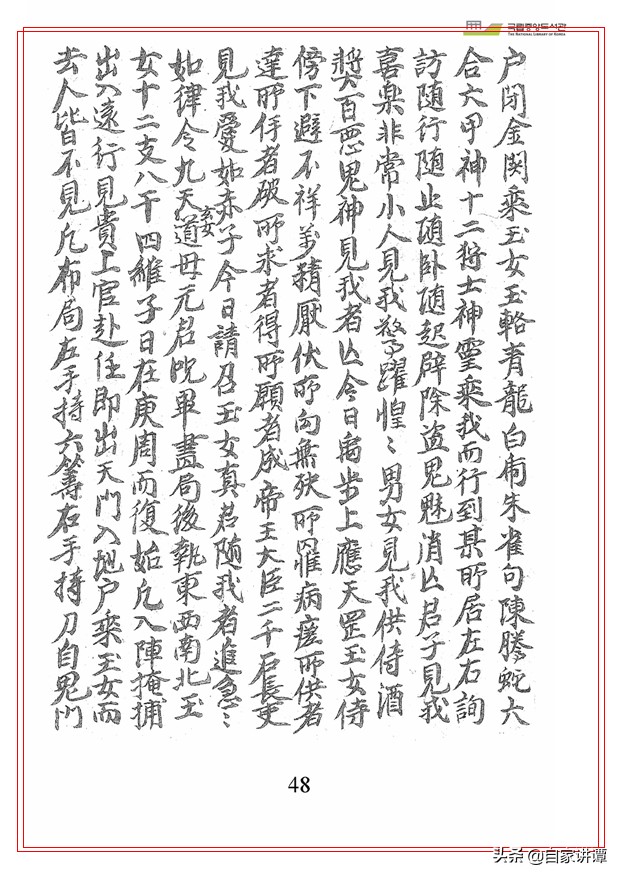 국립중앙도서관
THE NATIONAL LIBRARY OF KOREA
户閉金関乗玉女玉輅青龍白甫朱雀句陳騰蛇大
合六甲神十二將士神霊乗我而行到某所居左右詢
訪随行随止随卧随起辟除盗鬼魅消亾君子見我
喜楽非常小人見我驚躍惶〻男女見我供侍酒
漿百悪鬼神見我者亾今日禹步上應天罡玉女侍
傍下避不祥萬精厭伏所向無殃所罹病瘥所供者
達所仵者破所求者得所願者成帝王大臣二千石長吏
見我愛如赤子今日請召玉女真君随我者進急〻
如律令九天玄道母元君呪畢畫局後執東西南北玉
女十二支八干四維子日在庚周而復始凡入陣掩捕
出入遠行見貴上官赴任即出天門入地户乗玉女而
去人皆不見凡布局左手持六筭右手持刀自鬼門
48
头条 @自家讲谭